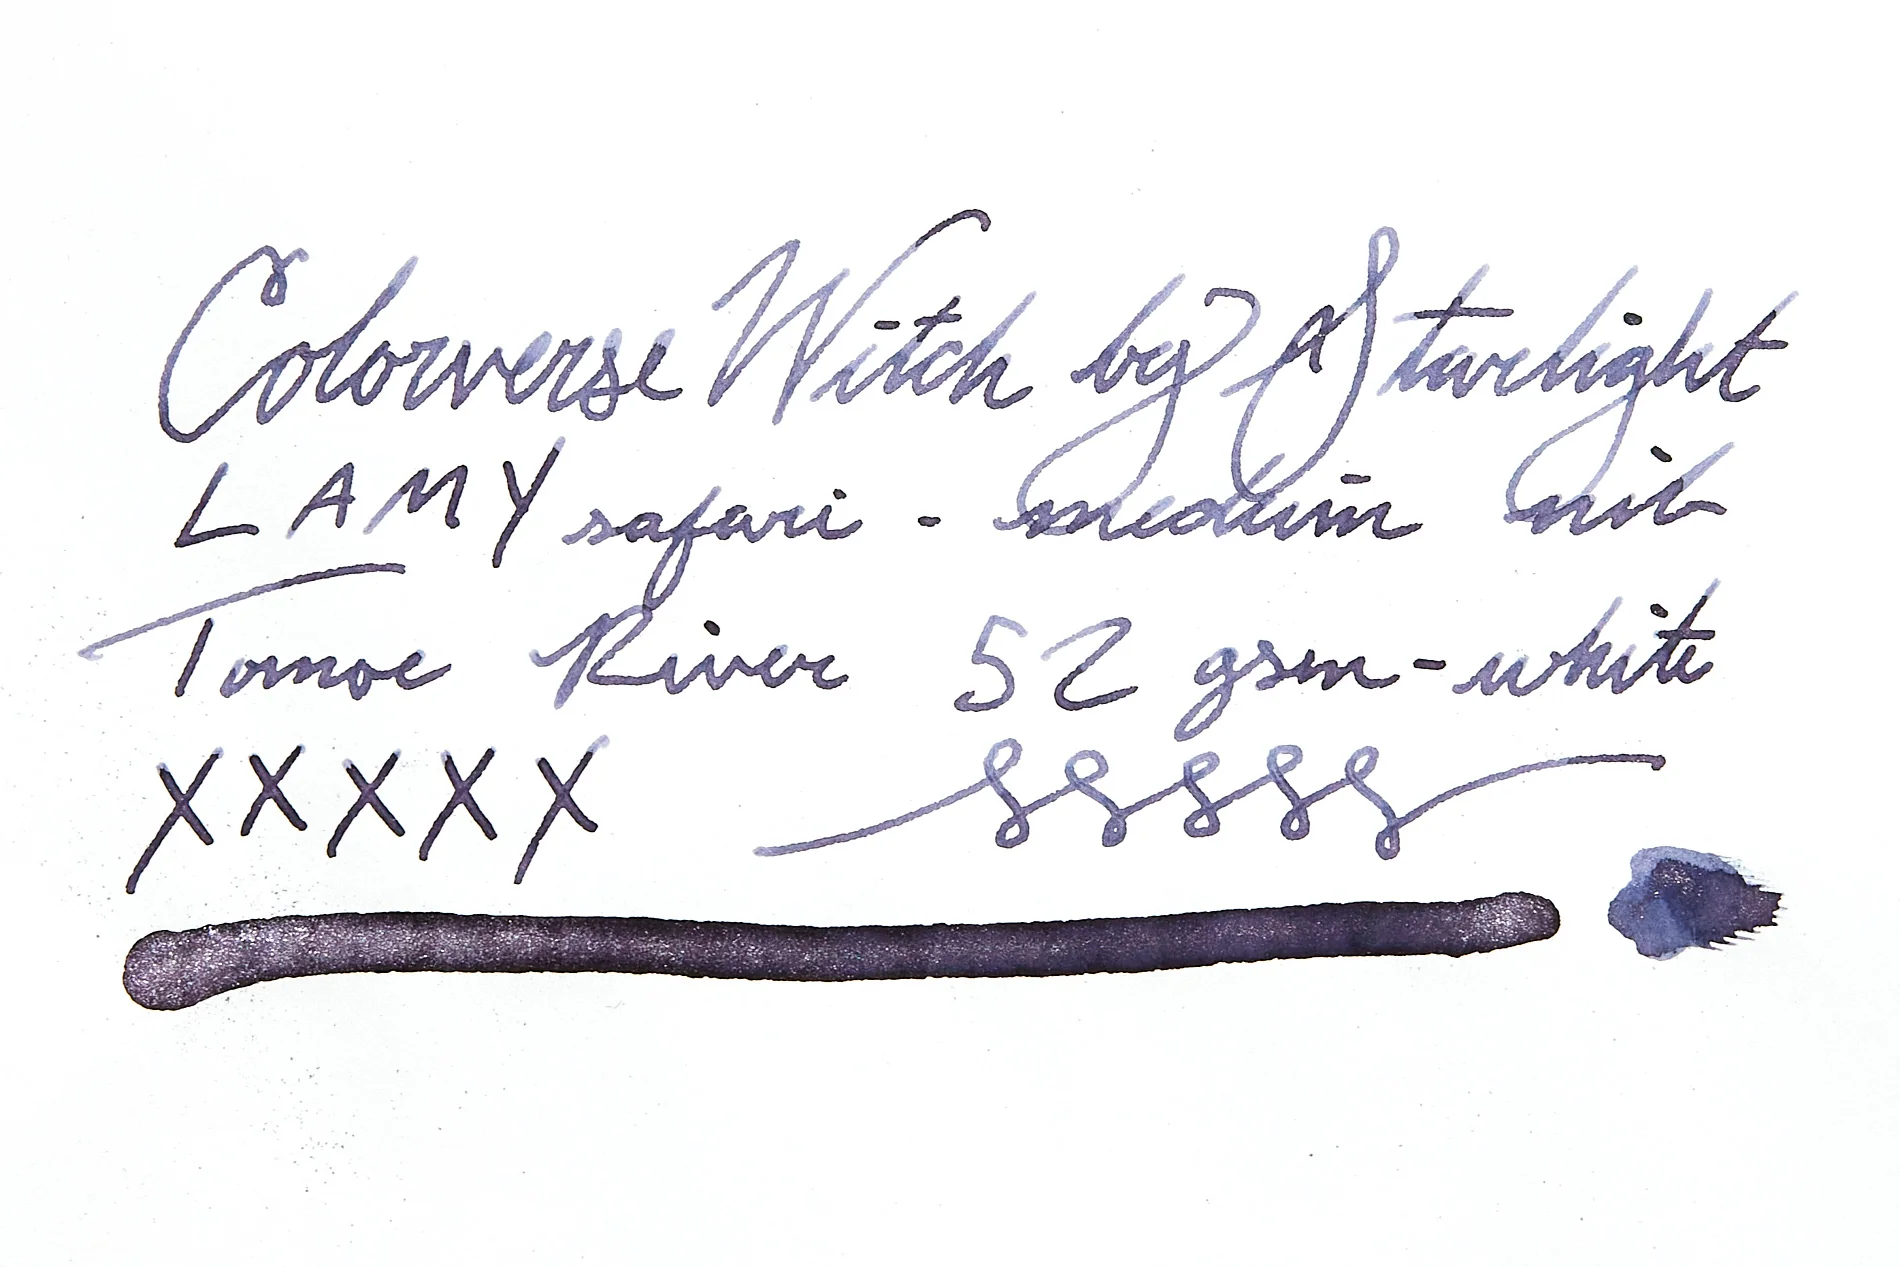 Colorverse Witch by Starlight
LAMY safari - medium nib
Tomoe River 52 gsm - white
XXXXX